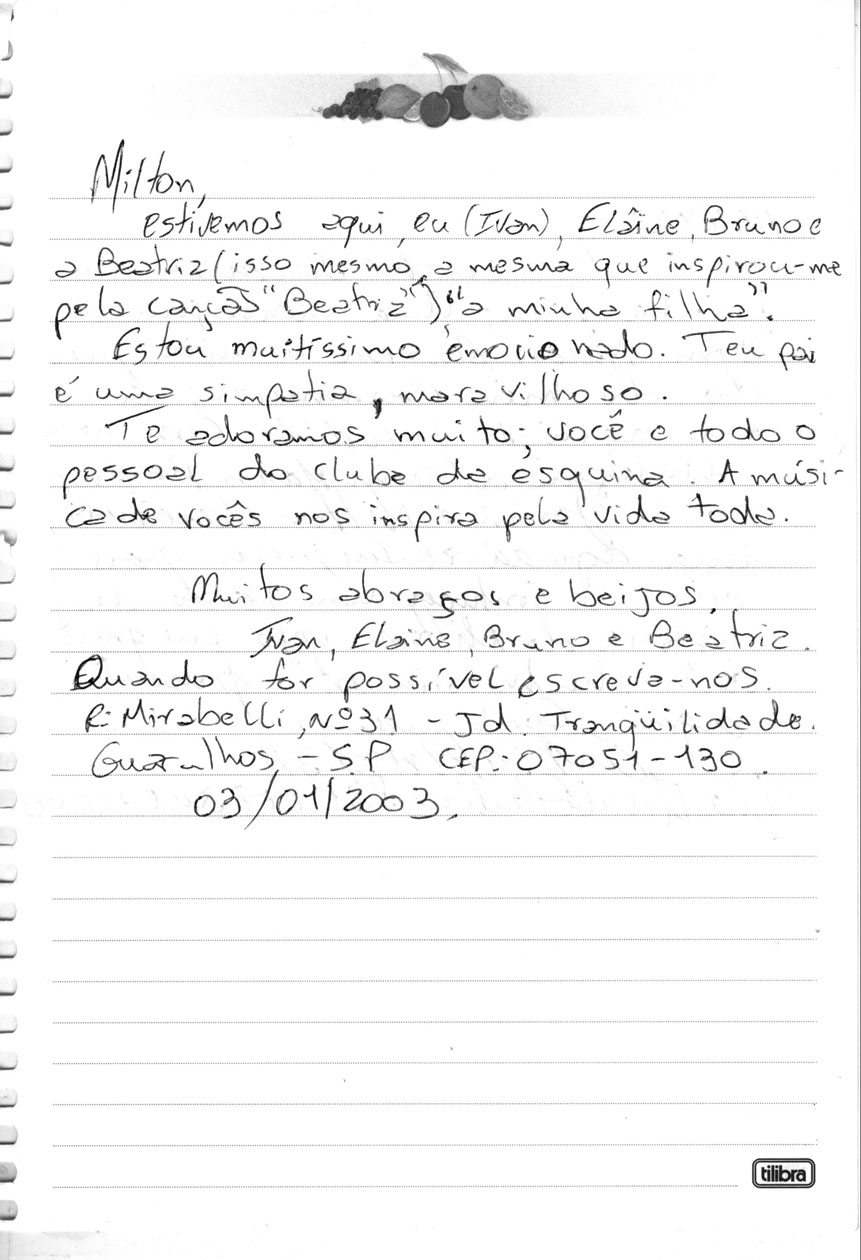 Milton,
estivemos aqui, eu (Ivan), Elaine, Bruno e
a Beatriz (isso mesmo, a mesma que inspirou-me
pela canção "Beatriz") "a minha filha".
Estou muitíssimo emocionado. Teu pai
é uma simpatia, maravilhoso.
Te adoramos muito; você e todo o
pessoal do clube da esquina. A músi-
ca de vocês nos inspira pela vida toda.
Muitos abraços e beijos,
Ivan, Elaine, Bruno e Beatriz.
Quando for possível escreva-nos.
R: Mirabelli, Nº 31 - Jd. Tranqüilidade.
Guarulhos - S.P CEP: 07051-130.
03/01/2003.
tilibra